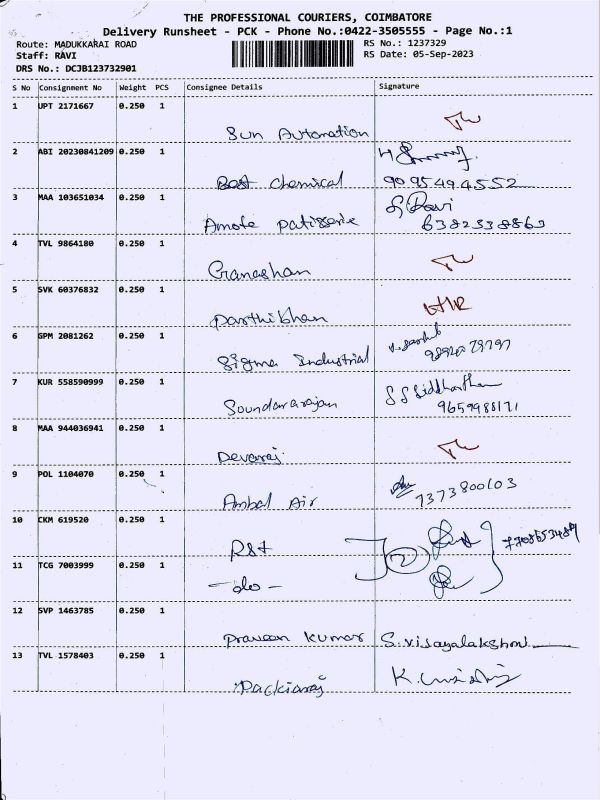 THE PROFESSIONAL COURIERS, COIMBATORE
Delivery Runsheet - PCK - Phone No.:0422-3505555 - Page No.:1
Route: MADUKKARAI ROAD
Staff: RAVI
DRS No.: DCJB123732901
RS No.: 1237329
RS Date: 05-Sep-2023
S No Consignment No Weight PCS Consignee Details Signature
1 UPT 2171667 0.250 1
Sun Automation
2 ABI 20230841209 0.250 1
Best chemical 9095494552
3 MAA 103651034 0.250 1
Amote patisserie Ravi
6382338863
4 TVL 9864180 0.250 1
Ganashan
5 SVK 60376832 0.250 1
Parthibhan
6 GPM 2081262 0.250 1
Sigma Industrial
7 KUR 558590999 0.250 1 S S Siddharthan
Soundararajan 9659988171
8 MAA 944036941 0.250 1
Devaraj
9 POL 1104070 0.250 1
Ambal Air 7373800103
10 CKM 619520 0.250 1
R&t 2
11 TCG 7003999 0.250 1
-do-
12 SVP 1463785 0.250 1
Praveen Kumar S. Vijayalakshmi
13 TVL 1578403 0.250 1
Packiaraj K.